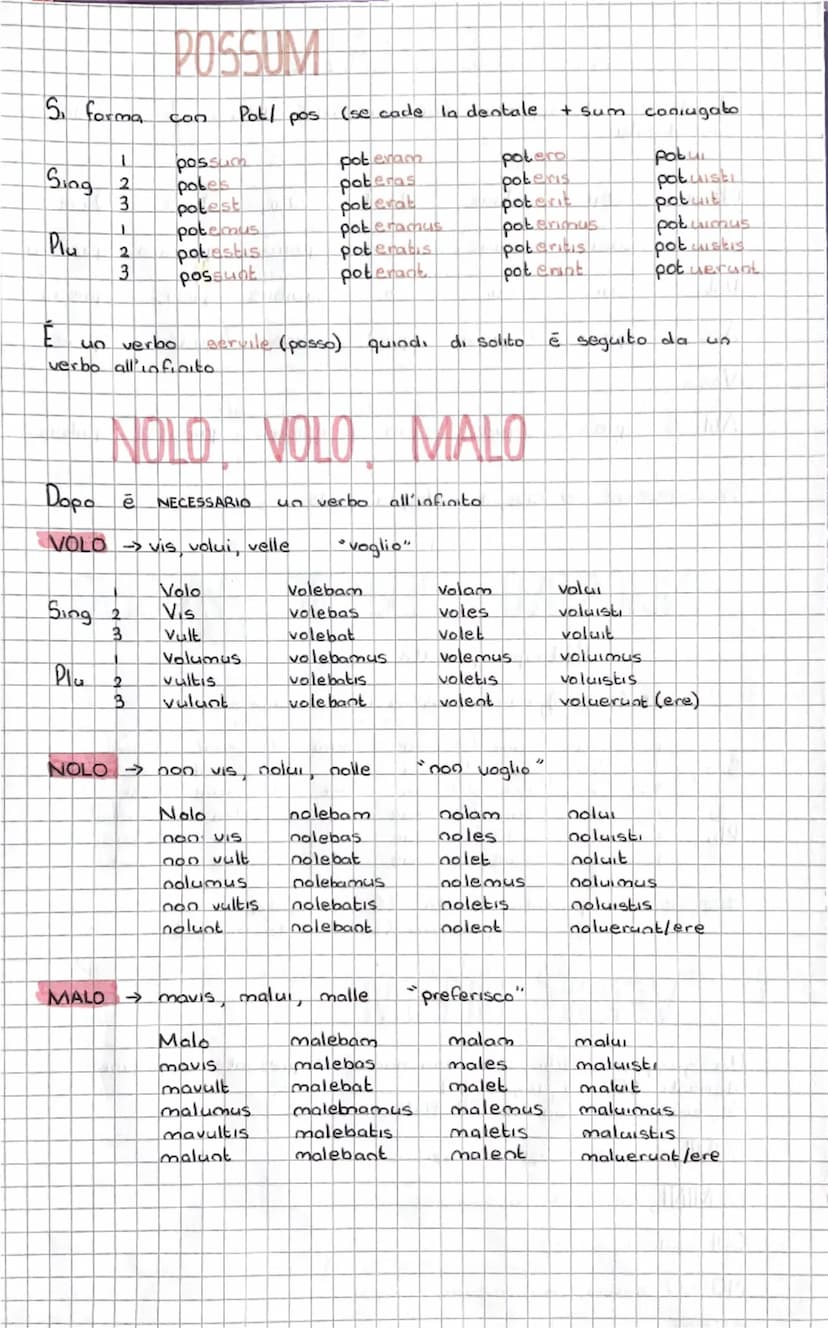 POSSUM
Si forma con Pot/ pos (se cade la dentale + sum coniugato
1 possum poteram potero potui
Sing 2 potes poteras poteris potuisti
3 potest poterat poterit potuit
1 potemus poteramus poterimus potuimus
Plu 2 potestis poteratis poteritis potuistis
3 possunt poterant poterint potuerunt
É un verbo servile (posso) quindi di solito ē seguito da un
verbo all'infinito
NOLO, VOLO, MALO
Dopo ē NECESSARIO un verbo all'infinito
VOLO → vis, volui, velle "voglio"
1 Volo Volebam Volam volui
Sing 2 Vis volebas voles voluisti
3 Vult volebat volet voluit
1 Volumus volebamus volemus voluimus
Plu 2 vultis volebatis voletis voluistis
3 vulunt volebant volent voluerunt (ere)
NOLO → non vis, nolui, nolle "non voglio"
Nolo nolebam nolam nolui
non vis nolebas noles noluisti
non vult nolebat nolet noluit
nolumus nolebamus nolemus noluimus
non vultis nolebatis noletis noluistis
nolunt nolebant nolent noluerunt/ere
MALO → mavis, malui, malle "preferisco"
Malo malebam malam malui
mavis malebas males maluisti
mavult malebat malet maluit
malumus malebnamus malemus maluimus
mavultis malebatis maletis maluistis
malunt malebant malent maluerunt/ere